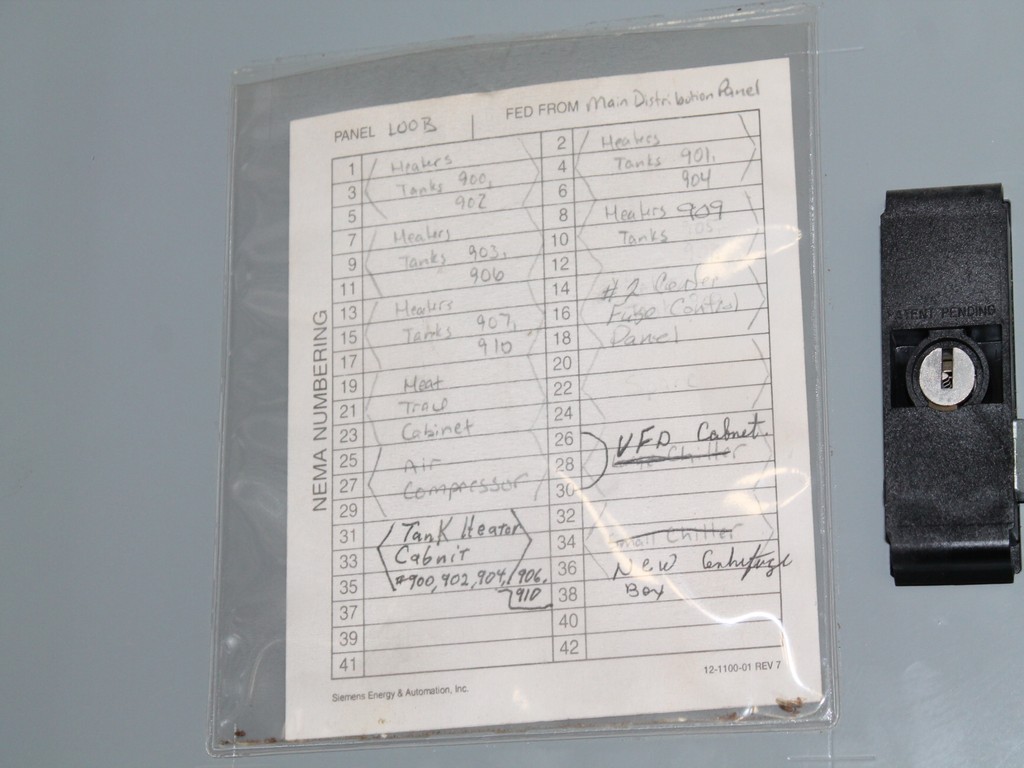 PANEL LOOB FED FROM Main Distribution Panel
NEMA NUMBERING
1 Heaters 2 Heaters
3 Tanks 900, 4 Tanks 901,
5 902 6 904
7 Heaters 8 Heaters 909
9 Tanks 903, 10 Tanks
11 906 12
13 Heaters 14 #2 Centri
15 Tanks 907, 16 Fuge Control
17 910 18 Panel
19 Heat 20
21 Trace 22
23 Cabinet 24
25 Air 26 VFD Cabnet.
27 Compressor 28 Chiller
29 30
31 Tank Heater 32
33 Cabnit 34 Small Chiller
35 #900, 902, 904, 906, 36 New Centrifuge
910
37 38 Box
39 40
41 42
Siemens Energy & Automation, Inc. 12-1100-01 REV 7
PATENT PENDING